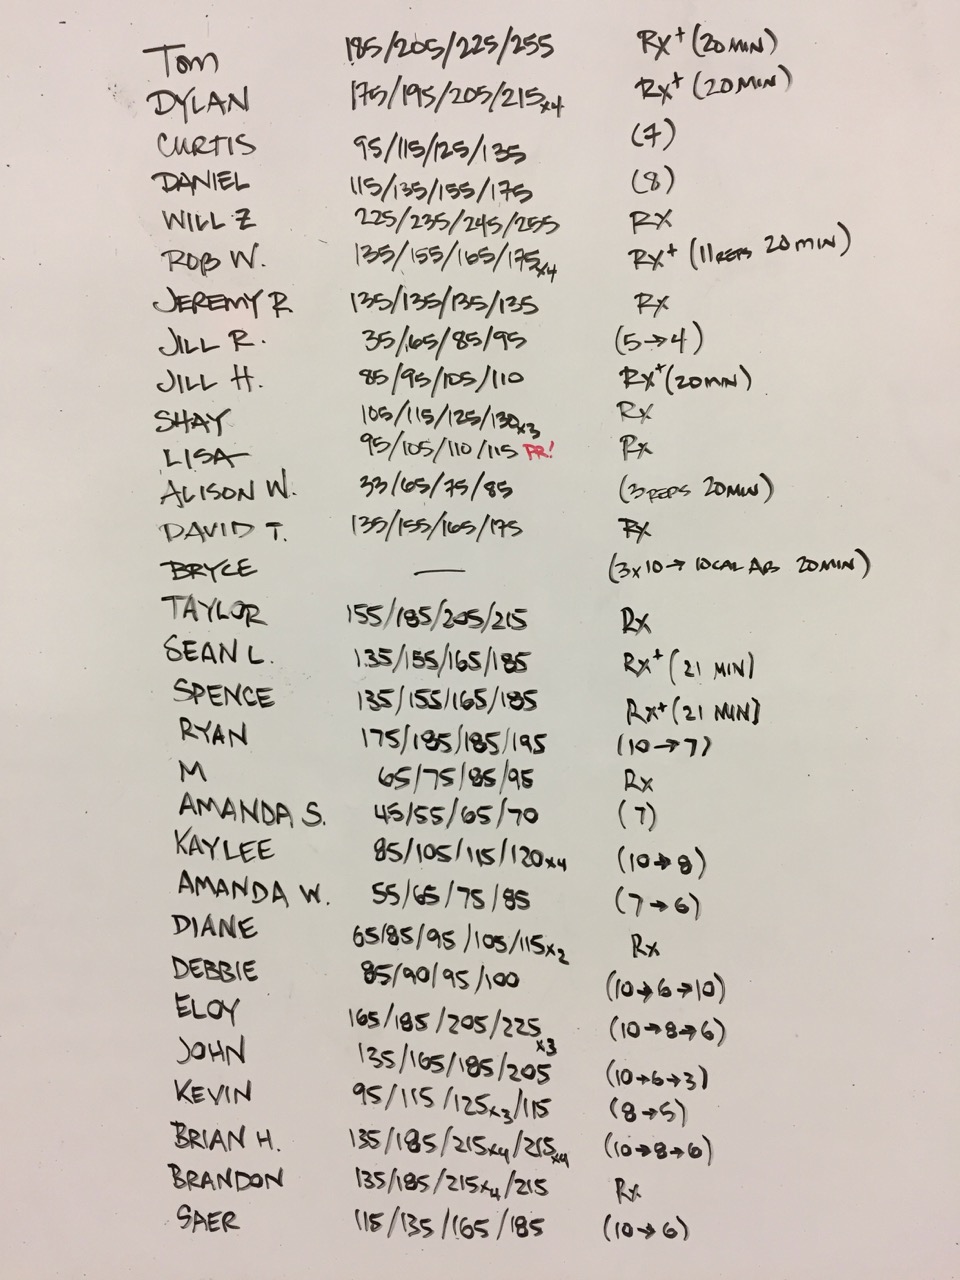 Tom 185/205/225/255 Rx+ (20 MIN)
DYLAN 175/195/205/215x4 Rx+ (20 MIN)
CURTIS 95/115/125/135 (7)
DANIEL 115/135/155/175 (8)
WILL Z 225/235/245/255 Rx
ROB W. 135/155/165/175x4 Rx+ (11 REPS 20 MIN)
JEREMY R 135/135/135/135 Rx
JILL R. 35/65/85/95 (5→4)
JILL H. 85/95/105/110 Rx+ (20 MIN)
SHAY 105/115/125/130x3 Rx
LISA 95/105/110/115 PR! Rx
ALISON W. 33/65/75/85 (3 REPS 20 MIN)
DAVID T. 135/155/165/175 Rx
BRYCE — (3x10→10CAL AB 20 MIN)
TAYLOR 155/185/205/215 Rx
SEAN L. 135/155/165/185 Rx+ (21 MIN)
SPENCE 135/155/165/185 Rx+ (21 MIN)
RYAN 175/185/185/195 (10→7)
M 65/75/85/95 Rx
AMANDA S. 45/55/65/70 (7)
KAYLEE 85/105/115/120x4 (10→8)
AMANDA W. 55/65/75/85 (7→6)
DIANE 65/85/95/105/115x2 Rx
DEBBIE 85/90/95/100 (10→6→10)
ELOY 165/185/205/225x3 (10→8→6)
JOHN 135/165/185/205 (10→6→3)
KEVIN 95/115/125x3/115 (8→5)
BRIAN H. 135/185/215x4/215x4 (10→8→6)
BRANDON 135/185/215x4/215 Rx
SAER 115/135/165/185 (10→6)